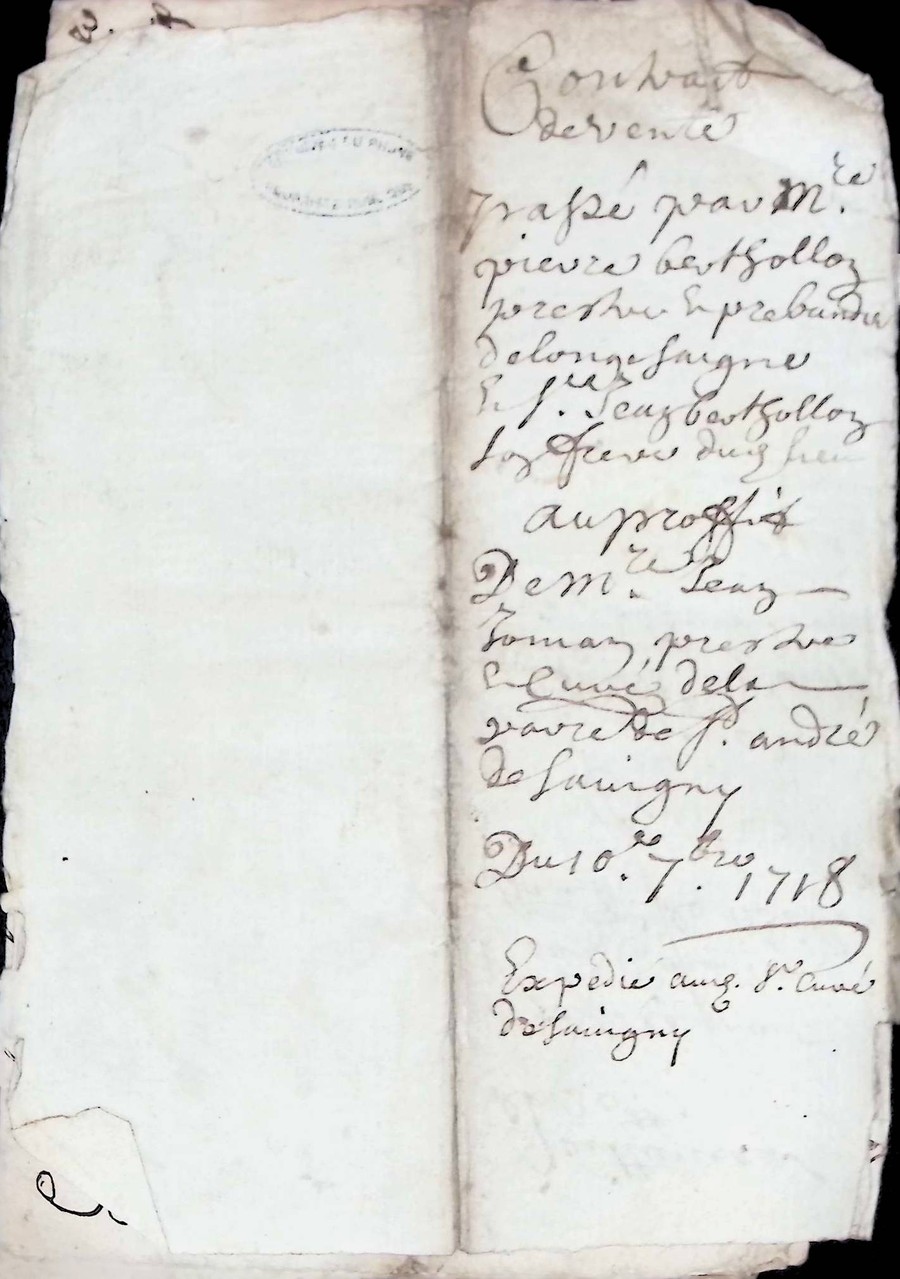 Contract
de vente
passé par M.re
pierre bertholloy
prestre & prebandier
de longesaigne
& s.r Jean bertholloy
son frere dud lieu
au proffit
De M.re Jean
prestre
& Curé de la
parre de s.t andré
de Sauvigny
Du 10.e 7.bre 1718
Expedié aud. s.r Curé
de Sauvigny